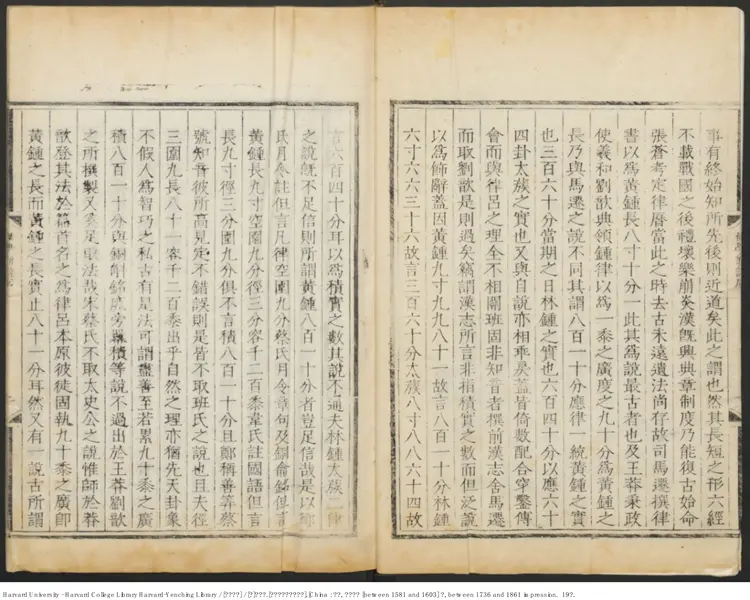 事有終始知所先後則近道矣此之謂也然其長短之形六經
不載戰國之後禮壞樂崩炎漢旣興典章制度乃能復古始命
張蒼考定律曆當此之時去古未遠遺法尚存故司馬遷撰律
書以為黃鍾長八寸十分一此其為說最古者也及王莽秉政
使羲和劉歆典領鍾律以為一黍之廣度之九十分為黃鍾之
長乃與馬遷之說不同其謂八百一十分應律一統黃鍾之實
也三百六十分當期之日林鍾之實也六百四十分以應六十
四卦太蔟之實也又與自說亦相乖戾蓋皆倚數配合穿鑿傅
會而與律呂之理全不相關班固非知音者撰前漢志舍馬遷
而取劉歆是則過矣竊謂漢志所言非指積實之數而但泛說
以為飾辭蓋因黃鍾九寸九九八十一故言八百一十分林鍾
六寸六六三十六故言三百六十分太蔟八寸八八六十四故
言六百四十分耳以為積實之數其說不通夫林鍾太蔟二律
之說旣不足信則所謂黃鍾八百一十分者豈足信哉是以
氏月令註但言凡律空圍九分蔡氏月令章句及銅龠銘但言
黃鍾長九寸空圍九分徑三分容千二百黍韋氏註國語但言
長九寸徑三分圍九分俱不言積八百一十分且鄭稱善筭蔡
號知音彼所高見定不錯誤則是皆不取班氏之說也且夫徑
三圍九長八十一容千二百黍出乎自然之理亦猶先天卦象
不假人為智巧之私古有是法可謂盡善至若累九十黍之廣
積八百一十分與銅斛銘庣旁冪積等說不過出於王莽劉歆
之所撰製又奚足取法哉朱蔡氏不取太史公之說惟師於莽
歆登其法於篇首名之為律呂本原彼徒固執九十黍之廣即
黃鍾之長而黃鍾之長實止八十一分耳然又有一說古所謂
Harvard University - Harvard College Library Harvard-Yenching Library / [????] / [?]???. [?????????]. [China : ??, ???? [between 1581 and 1603] ?, between 1736 and 1861 impression. 19?.